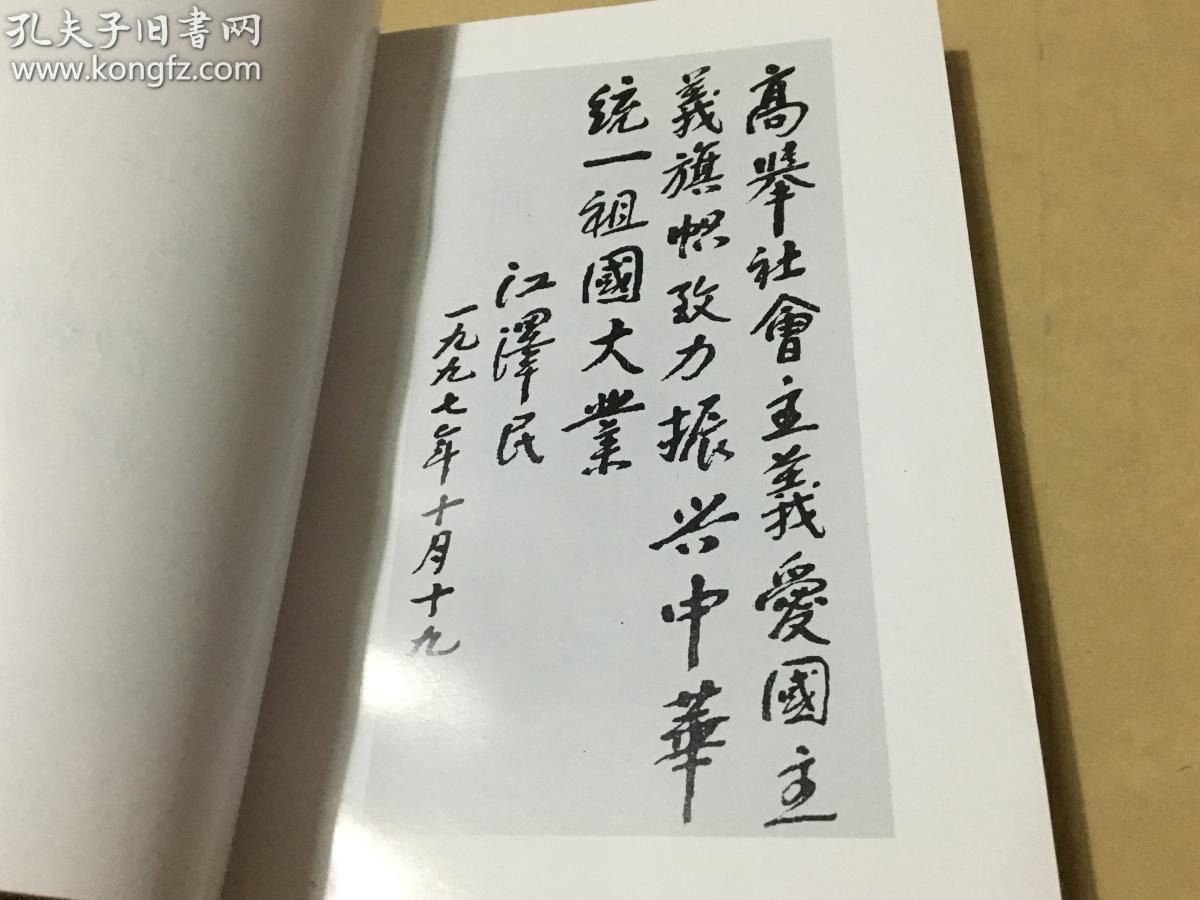 孔夫子旧書网
www.kongfz.com
高舉社會主義愛國主
義旗幟致力振兴中華
統一祖國大業
江澤民
一九九七年十月十九